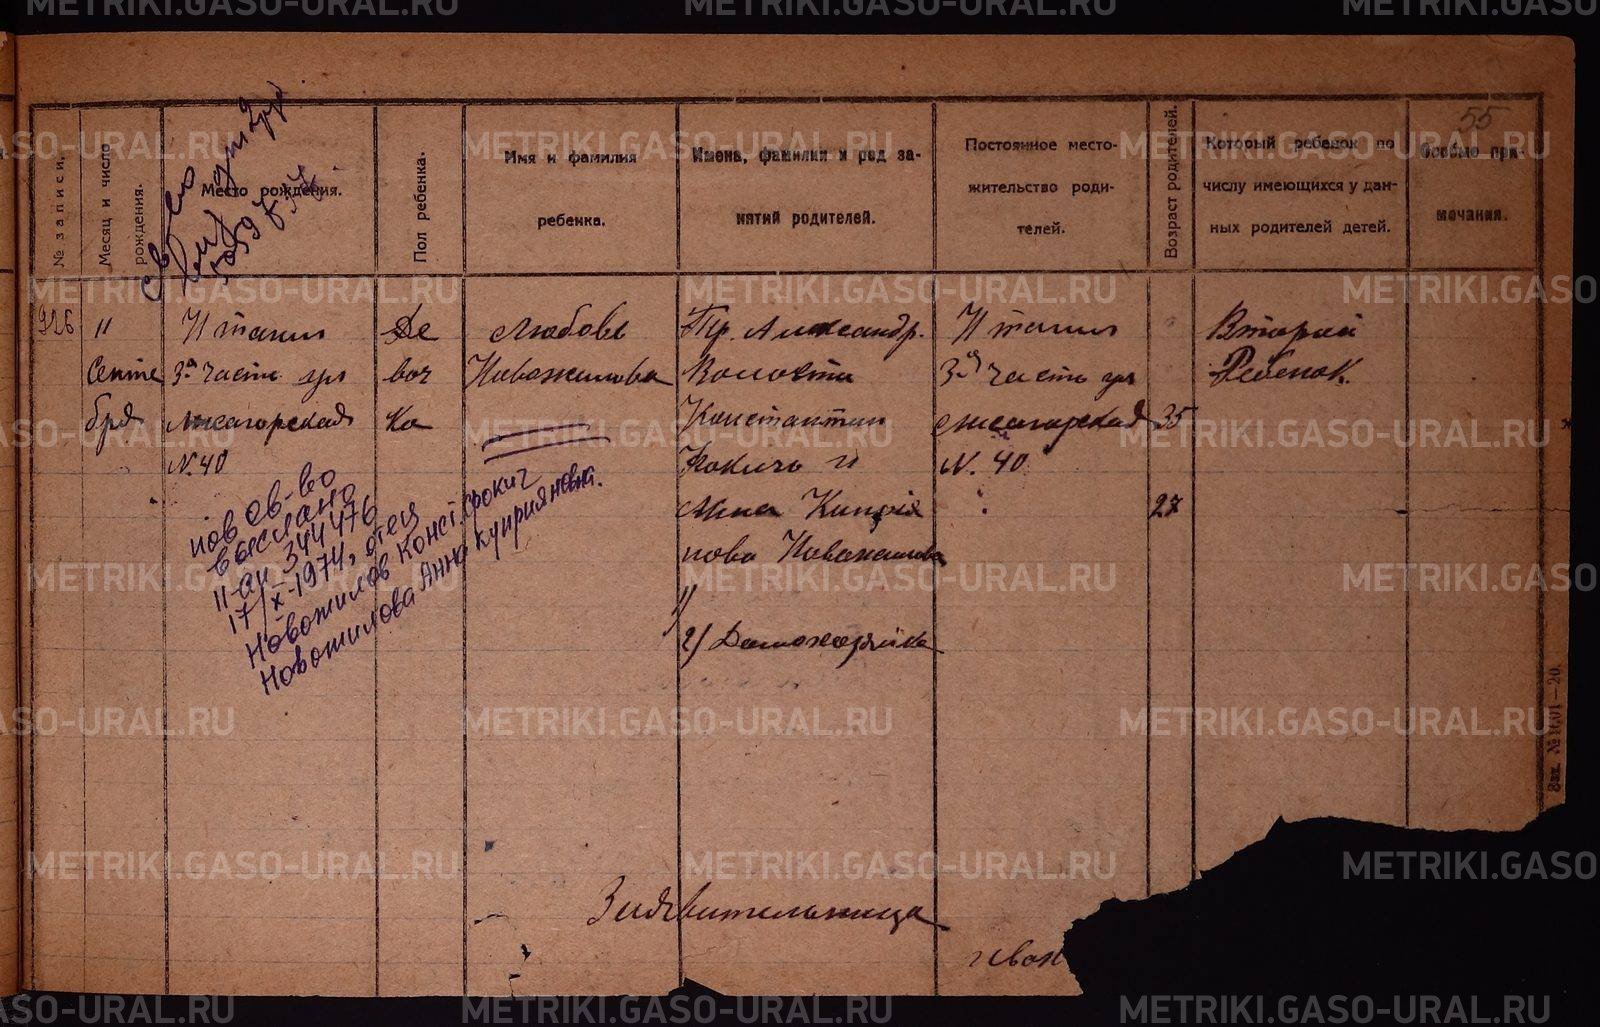 METRIKI.GASO-URAL.RU
55
№ записи.
Месяц и число рождения.
Место рождения.
Пол ребенка.
Имя и фамилия
ребенка.
Имена, фамилии и род за-
нятий родителей.
Постоянное место-
жительство роди-
телей.
Возраст родителей.
Который ребенок по
числу имеющихся у дан-
ных родителей детей.
Особые при-
мечания.
926
11
Сентя
бря
Н тагил
3-я часть
Лисагорская
№ 40
Де
воч
ка
Любовь
Новожилова
Гр. Александр.
Волости
Константин
и
Анна Киприя
нова Новожилова
1)
2) Домохозяйка
Н тагил
3-я часть
Лисагорская
№ 40
35
27
Второй
Ребенок.
пов св-во
выслано
II-аи 344476
17/X-1974, отец
Новожилов Конст.
Новожилова Анна Куприяновна.
Заявительница
Зак. № 1001—20.